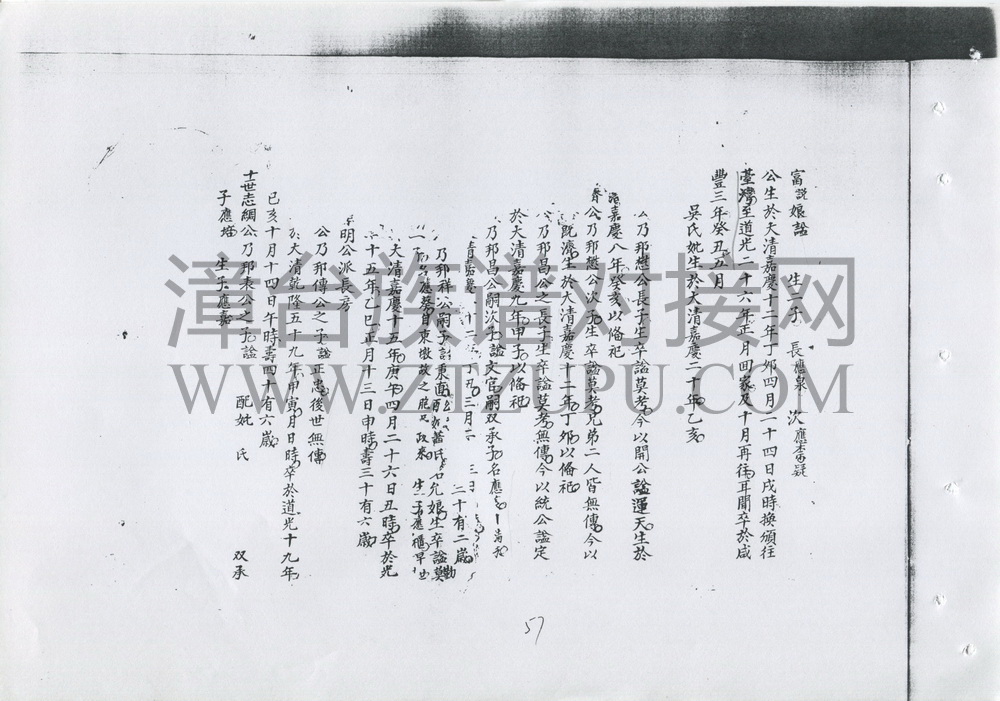 富說娘諡 生二子 長應泉 次應李疑
公生於大清嘉慶十二年丁卯四月二十四日戌時換頒往
臺灣至道光二十六年正月回家及十月再往耳聞卒於咸
豐三年癸丑五月
吳氏妣生於大清嘉慶二十年乙亥
乃邦懋公長子生卒諡莫考今以開公諡運天生於
嘉慶八年癸亥以俻祀
公乃邦懋公次子生卒諡莫考兄弟二人皆無傳今以
既濟生於大清嘉慶十二年丁卯以俻祀
乃邦昌公之長子生卒諡莫考無傳今以統公諡定
於大清嘉慶九年甲子以俻祀
乃邦昌公嗣次子諡文官嗣双承子名應
嘉慶 十二 丁丑三月 二十有二歲
乃邦祥公嗣子諡東直 氏 允娘生卒諡莫
應葵自東 故之 生一子應 早世
大清嘉慶十五年庚午四月二十六日丑時卒於光
十五年乙巳正月十三日申時壽三十有六歲
明公派長房
公乃邦傳公之子諡正忠後世無傳
於大清乾隆五十九年甲寅月日時卒於道光十九年
己亥十月十四日午時壽四十有六歲
十世志綢公乃邦表公之子諡 配妣 氏 双承
子應培 生子應嘉
57
漳台族谱对接网
WWW.ZTZUPU.COM